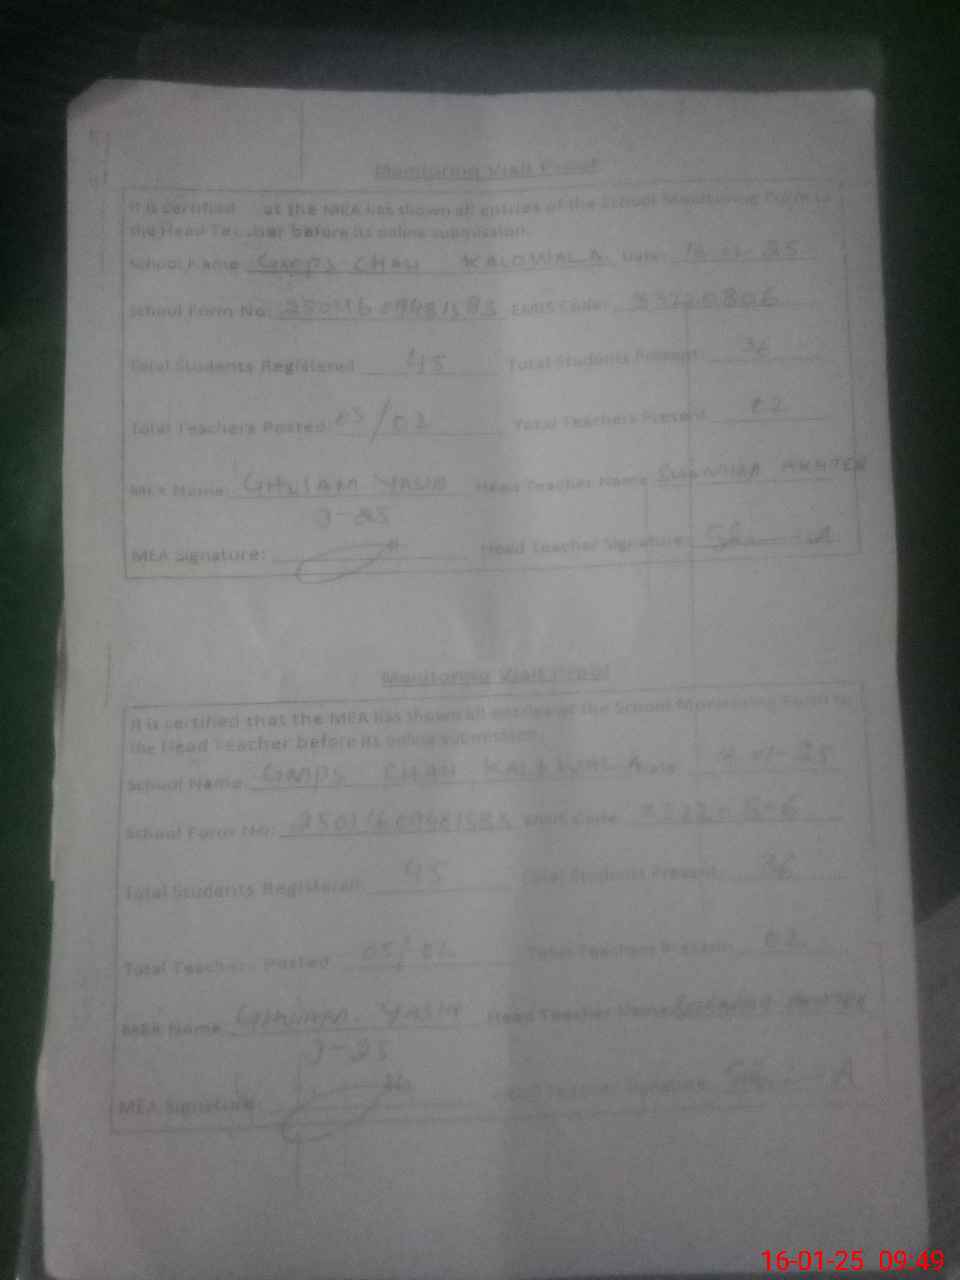 Monitoring Visit Proof
It is certified at the MEA has shown all entries of the School Monitoring Form to
the Head Teacher before its online submission.
School Name: GMPS CHAH KALOWALA Date: 16-01-25
School Form No: 25011609481583 EMIS Code: 33220806
Total Students Registered 45 Total Students Present 36
Total Teachers Posted: 05/02 Total Teachers Present 02
MEA Name: GHULAM YASIN Head Teacher Name AKHTER
J-25
MEA Signature: Head Teacher Signature:
Monitoring Visit Proof
It is certified that the MEA has shown all entries of the School Monitoring Form to
the Head Teacher before its online submission.
School Name: GMPS CHAH Date 16-01-25
School Form No: 25011609481583 EMIS Code
Total Students Registered: 45 Total Students Present: 36
Total Teachers Posted 05/02 Total Teachers Present: 02
MEA Name GHULAM YASIN Head Teacher Name AKHTER
J-25
MEA Signature: Head Teacher Signature:
16-01-25 09:49